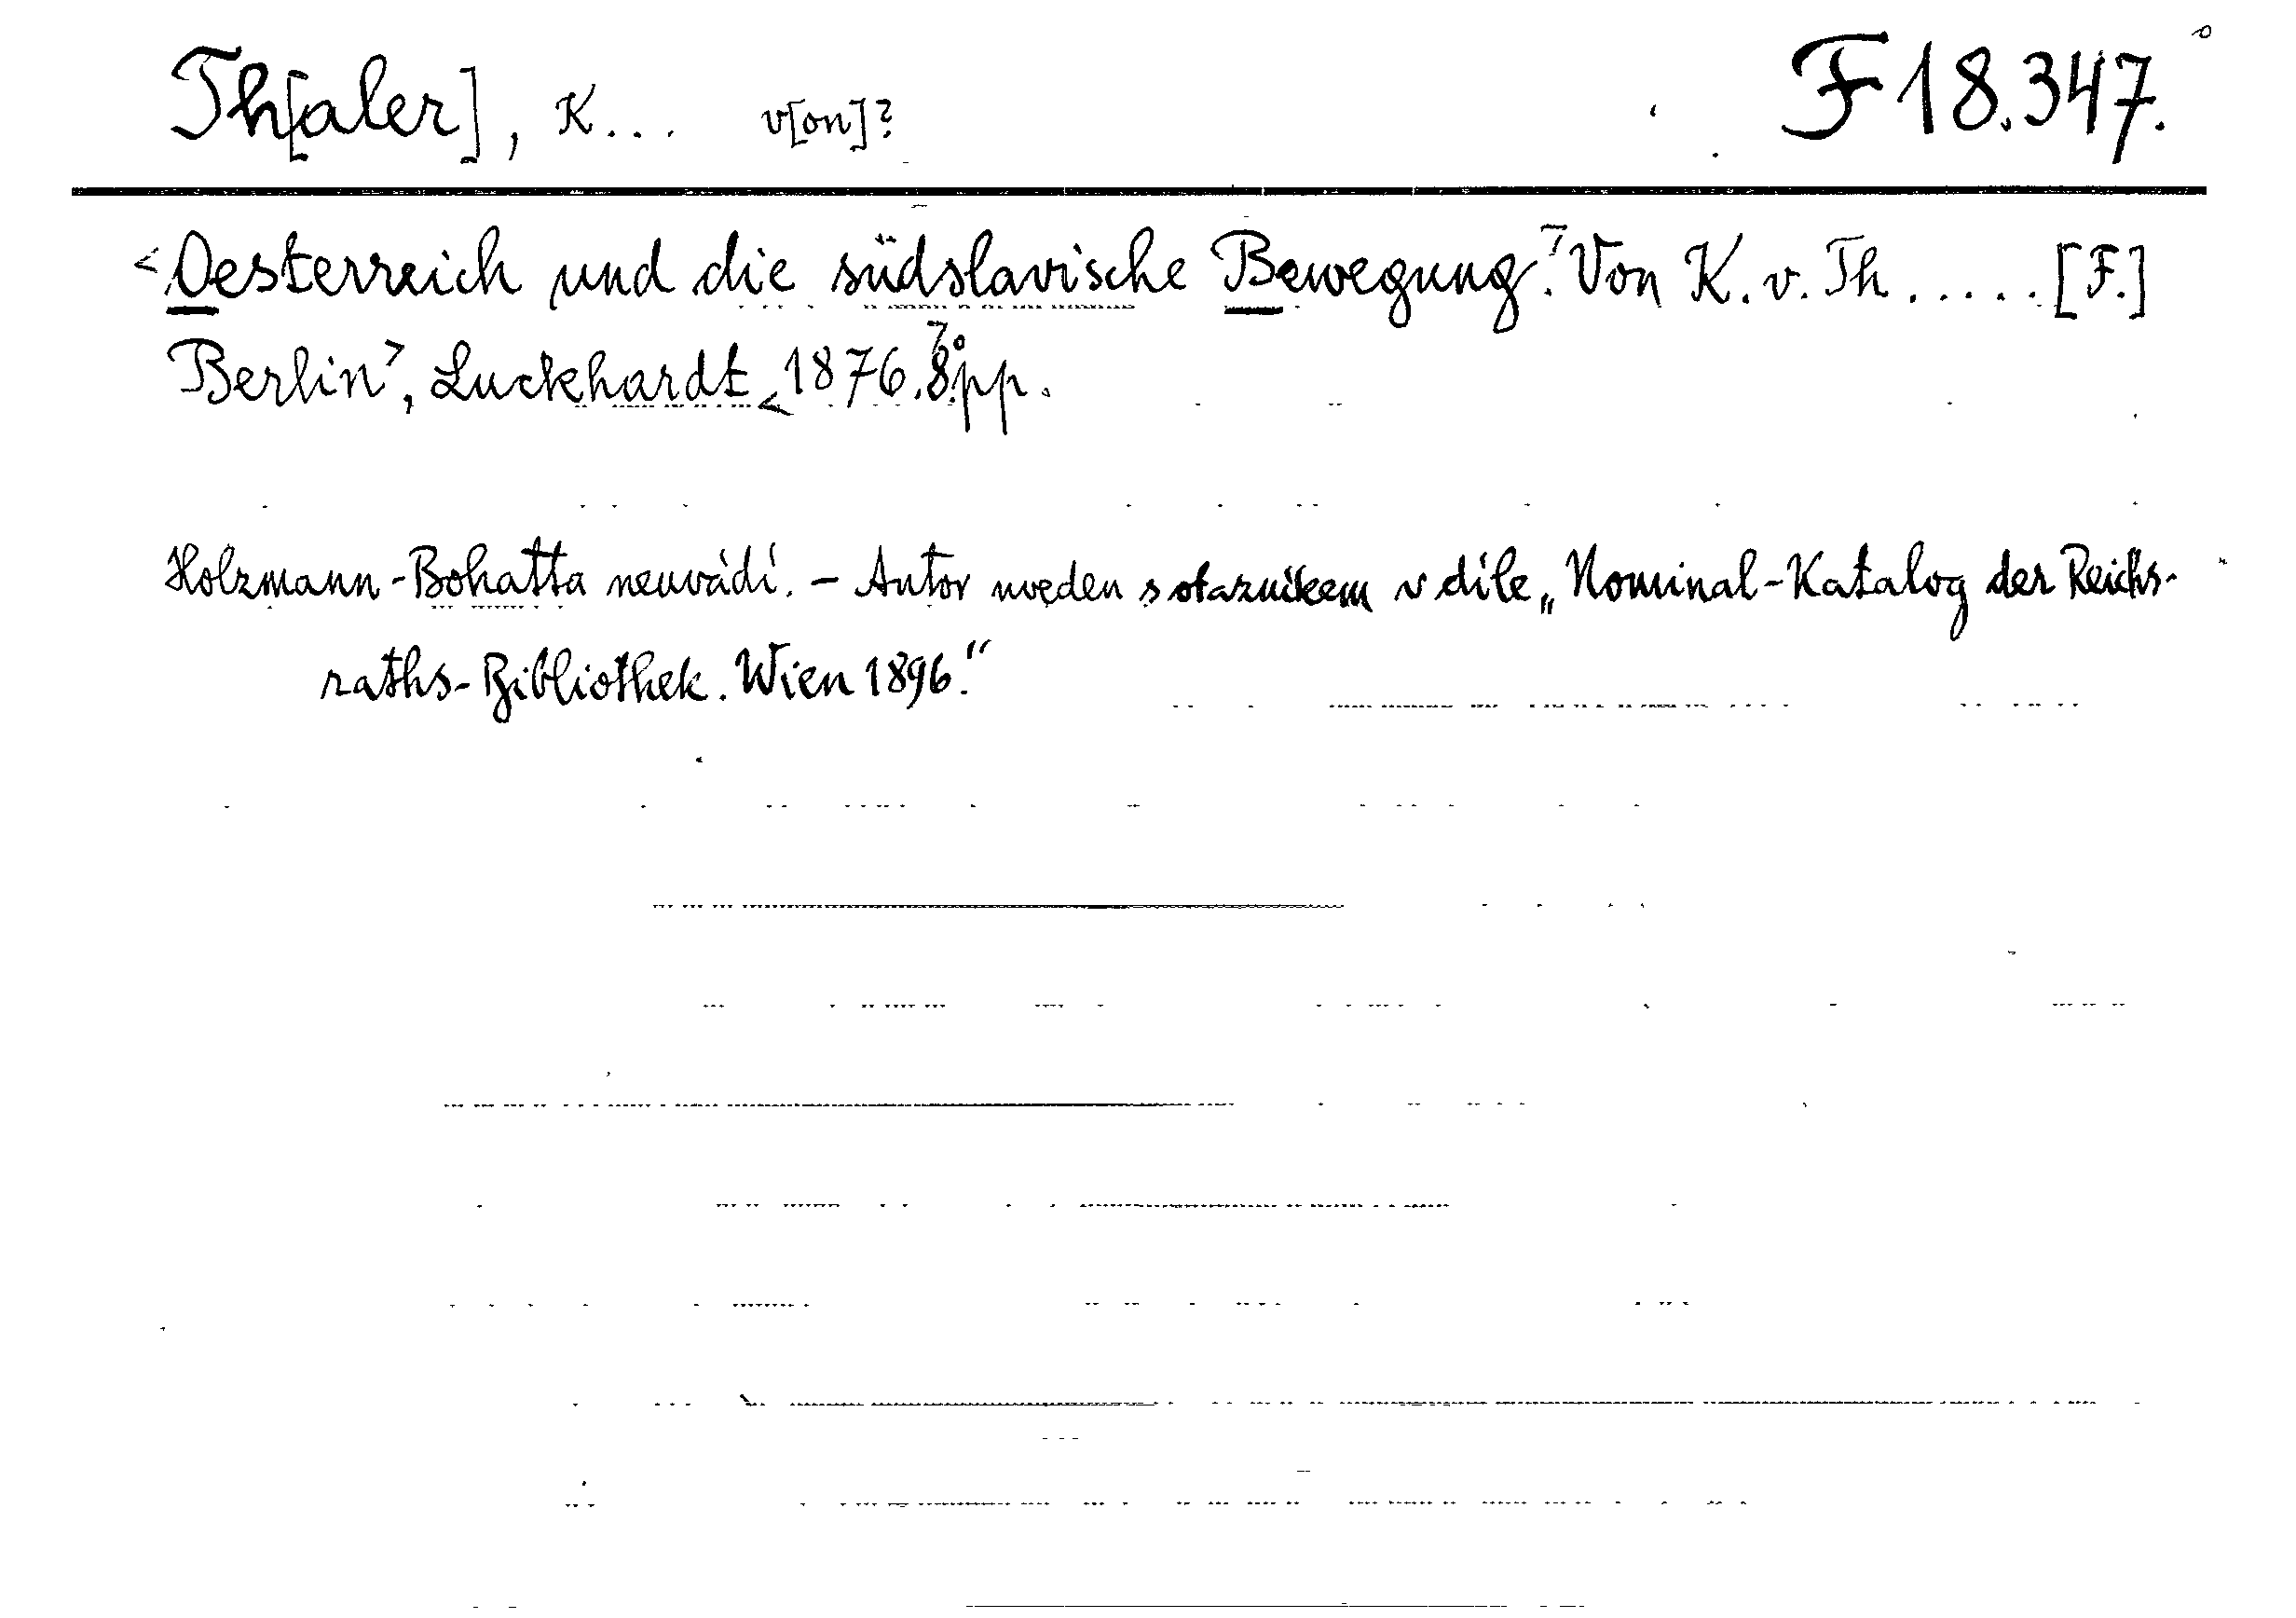 Th[aler], K... v[on]? F 18.347.
<Oesterreich und die südslavische Bewegung.> Von K. v. Th..... [F.]
Berlin>, Luckhardt <1876.> 8°. pp.
Holzmann-Bohatta neuvádí. – Autor uveden s otazníkem v díle „Nominal-Katalog der Reichs-
raths-Bibliothek. Wien 1896."